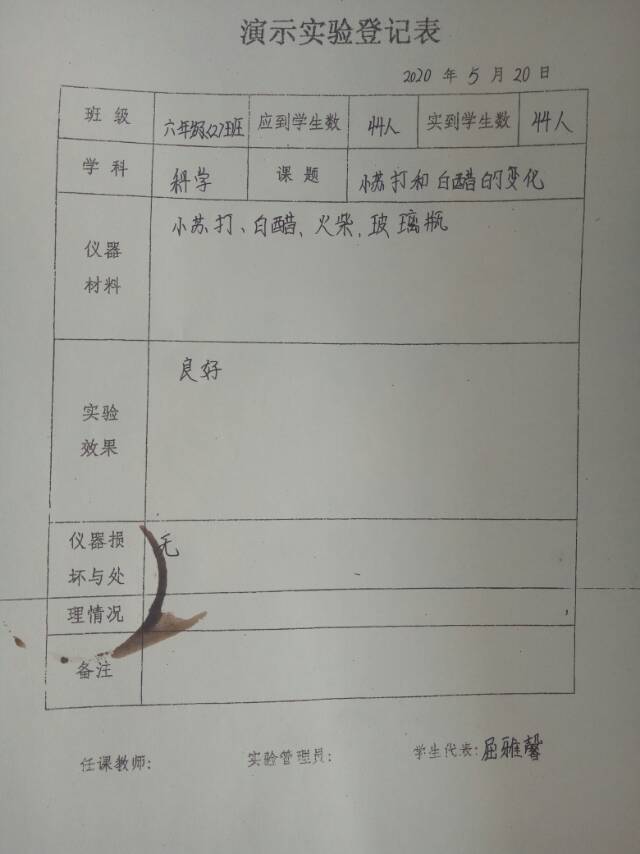 演示实验登记表
2020 年 5 月 20 日
班 级 六年级(2)班 应到学生数 44人 实到学生数 44人
学 科 科学 课 题 小苏打和白醋的变化
仪器
材料
小苏打、白醋、火柴、玻璃瓶
实验
效果
良好
仪器损
坏与处
理情况
无
备注
任课教师: 实验管理员: 学生代表: 屈雅馨